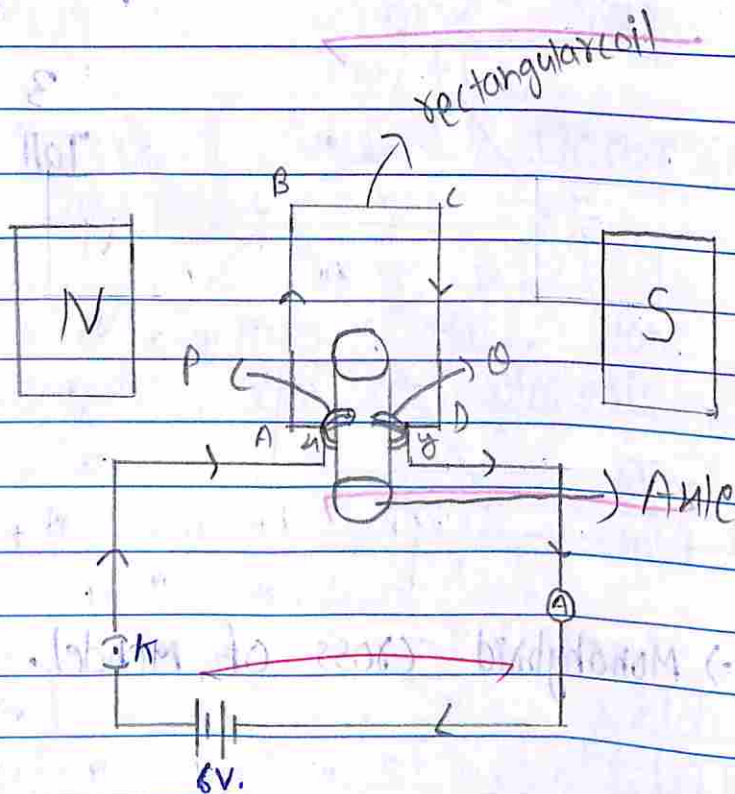 rectangular coil
B
C
N
S
P
Q
A
x
y
D
Axle
K
A
6V.